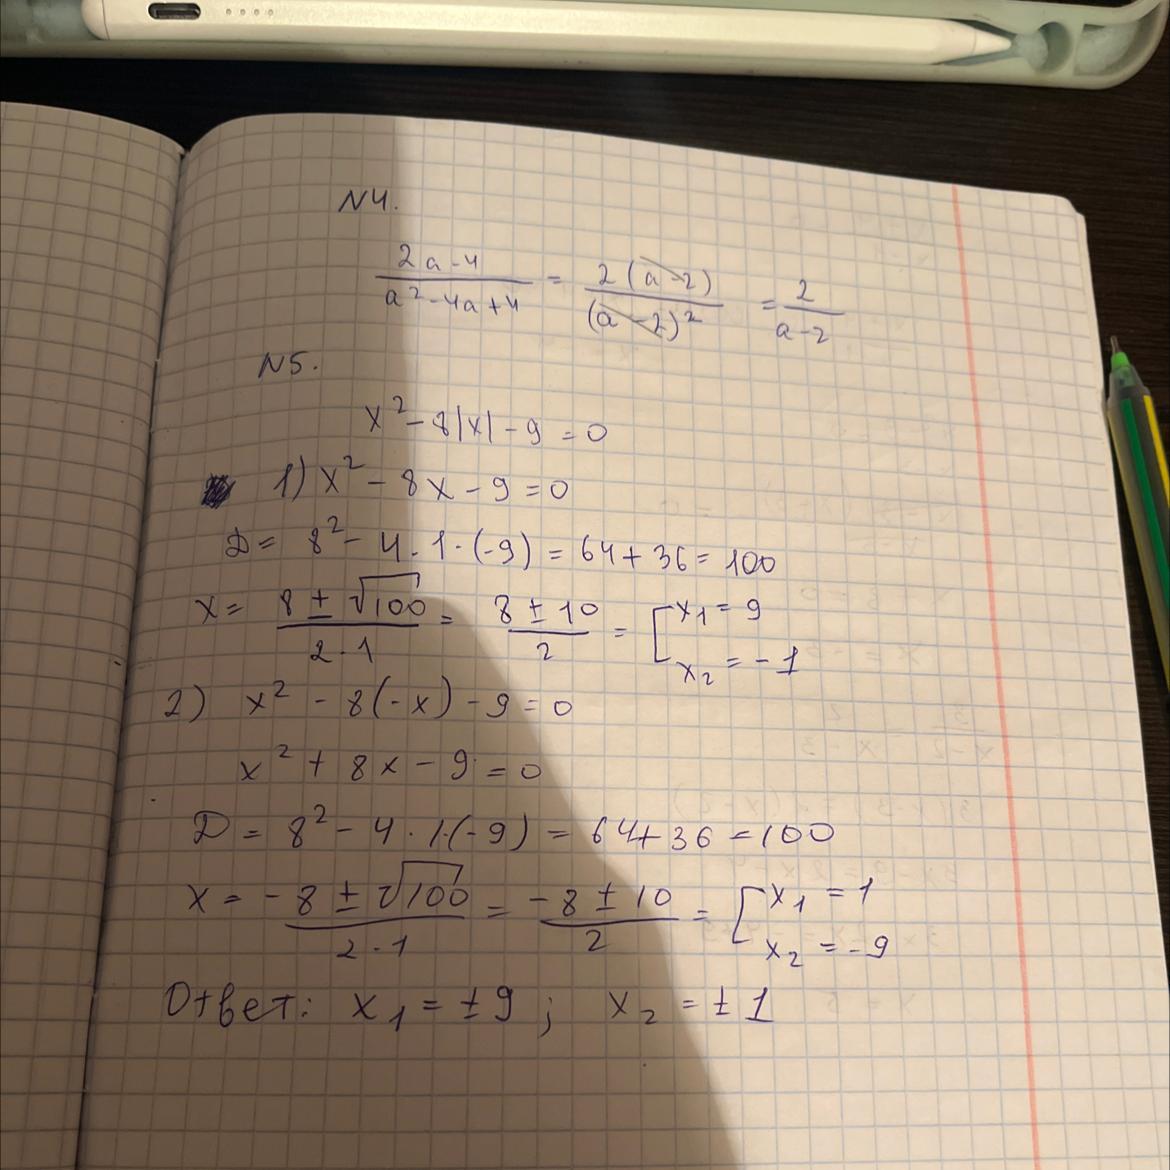 N4.
2a-4 / a²-4a+4 = 2(a-2) / (a-2)² = 2 / a-2
N5.
x²-8|x|-9=0
1) x²-8x-9=0
D= 8²-4·1·(-9)=64+36=100
x= 8±√100 / 2·1 = 8±10 / 2 = [x₁=9 x₂=-1
2) x²-8(-x)-9=0
x²+8x-9=0
D=8²-4·1·(-9)=64+36=100
x=-8±√100 / 2·1 = -8±10 / 2 = [x₁=1 x₂=-9
Ответ: x₁=±9; x₂=±1